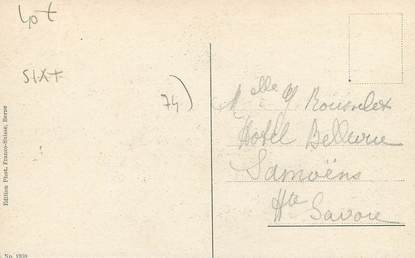 Lot
SIXT
74)
Edition Phot. Franco-Suisse, Berne
Melle Y Rousselet
Hotel Bellevue
Samoëns
Hte Savoie
No.